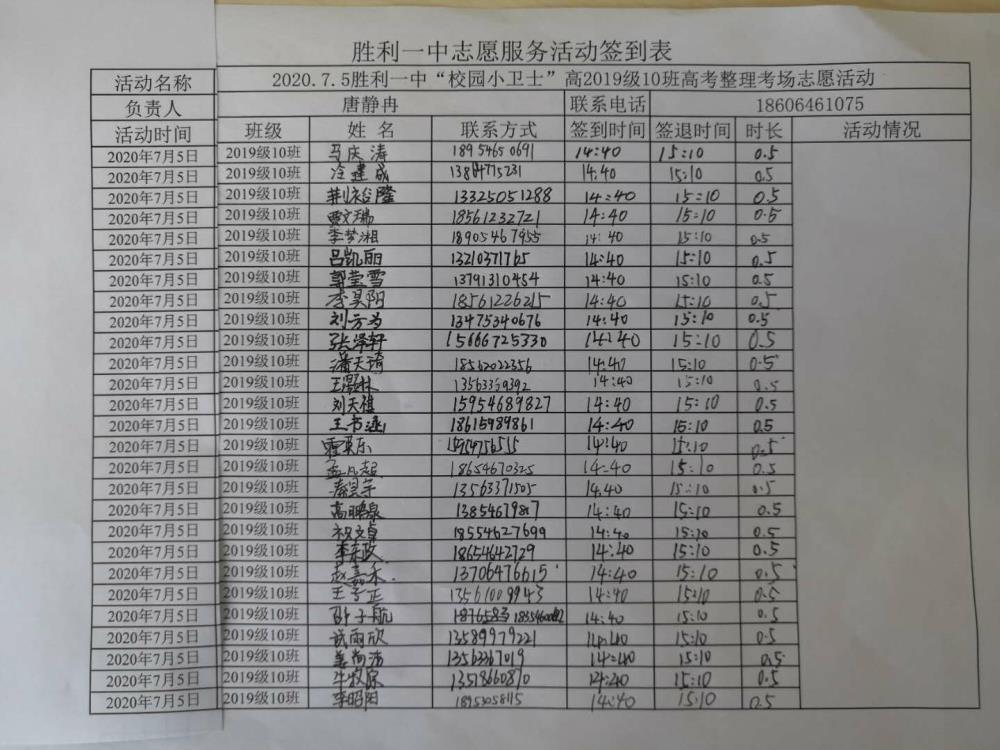 胜利一中志愿服务活动签到表
活动名称 2020.7.5胜利一中“校园小卫士”高2019级10班高考整理考场志愿活动
负责人 唐静冉 联系电话 18606461075
活动时间 班级 姓名 联系方式 签到时间 签退时间 时长 活动情况
2020年7月5日 2019级10班 马庆涛 18954650691 14:40 15:10 0.5
2020年7月5日 2019级10班 冷建成 14:40 15:10 0.5
2020年7月5日 2019级10班 荆裕隆 13325051288 14:40 15:10 0.5
2020年7月5日 2019级10班 贾文瑞 18561232721 14:40 15:10 0.5
2020年7月5日 2019级10班 李梦湘 18905467955 14:40 15:10 0.5
2020年7月5日 2019级10班 吕凯丽 13210371765 14:40 15:10 0.5
2020年7月5日 2019级10班 郭莹雪 13791310454 14:40 15:10 0.5
2020年7月5日 2019级10班 李昊阳 18561226215 14:40 15:10 0.5
2020年7月5日 2019级10班 刘方为 13475340676 14:40 15:10 0.5
2020年7月5日 2019级10班 张泽轩 15666725330 14:40 15:10 0.5
2020年7月5日 2019级10班 潘天琦 18562022356 14:40 15:10 0.5
2020年7月5日 2019级10班 13563359392 14:40 15:10 0.5
2020年7月5日 2019级10班 刘天祺 15954689827 14:40 15:10 0.5
2020年7月5日 2019级10班 王书涵 18615989861 14:40 15:10 0.5
2020年7月5日 2019级10班 14:40 15:10 0.5
2020年7月5日 2019级10班 孟凡超 18654670325 14:40 15:10 0.5
2020年7月5日 2019级10班 秦昊宇 13563371505 14:40 15:10 0.5
2020年7月5日 2019级10班 高鹏泉 14:40 15:10 0.5
2020年7月5日 2019级10班 祝文卓 18554627699 14:40 15:10 0.5
2020年7月5日 2019级10班 李东政 18654642729 14:40 15:10 0.5
2020年7月5日 2019级10班 赵嘉禾 13706476615 14:40 15:10 0.5
2020年7月5日 2019级10班 王子正 13561009943 14:40 15:10 0.5
2020年7月5日 2019级10班 孙子航 14:40 15:10 0.5
2020年7月5日 2019级10班 13589979221 14:40 15:10 0.5
2020年7月5日 2019级10班 姜尚浩 13563367019 14:40 15:10 0.5
2020年7月5日 2019级10班 牛牧原 13518660870 14:40 15:10 0.5
2020年7月5日 2019级10班 李昭阳 18953058115 14:40 15:10 0.5